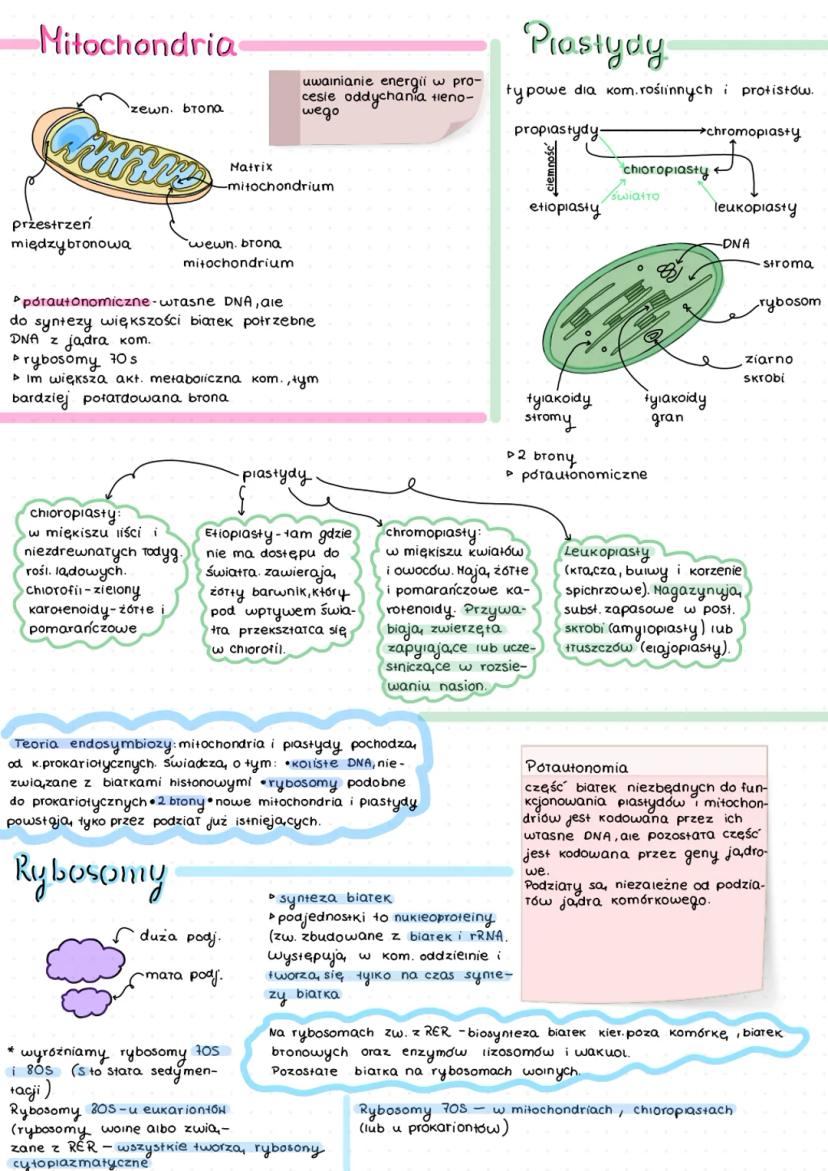 Mitochondria
uwalnianie energii w pro-
cesie oddychania tleno-
wego
zewn. błona
Matrix
mitochondrium
przestrzeń
międzybłonowa
wewn. błona
mitochondrium
▹półautonomiczne-własne DNA, ale
do syntezy większości białek potrzebne
DNA z jądra kom.
▹rybosomy 70s
▹ Im większa akt. metaboliczna kom., tym
bardziej pofałdowana błona
Plastydy
typowe dla kom.roślinnych i protistów.
proplastydy
chromoplasty
ciemność
chloroplasty
światło
etioplasty
leukoplasty
DNA
stroma
rybosom
ziarno
skrobi
tylakoidy
stromy
tylakoidy
gran
▹2 błony
▹ półautonomiczne
plastydy
chloroplasty:
w miękiszu liści i
niezdrewnałych łodyg.
rośl. lądowych.
Chlorofil-zielony
karotenoidy-żółte i
pomarańczowe
Etioplasty-tam gdzie
nie ma dostępu do
światła. zawierają
żółty barwnik,który
pod wpływem świa-
tła przekształca się
w chlorofil.
chromoplasty:
w miękiszu kwiatów
i owoców. Mają żółte
i pomarańczowe ka-
rotenoidy. Przywa-
biają zwierzęta
zapylające lub ucze-
stniczące w rozsie-
waniu nasion.
Leukoplasty
(kłącza, bulwy i korzenie
spichrzowe). Magazynują
subst. zapasowe w post.
skrobi (amyloplasty) lub
tłuszczów (elajoplasty).
Teoria endosymbiozy:mitochondria i plastydy pochodzą
od k.prokariotycznych. Świadczą o tym: •koliste DNA,nie-
związane z białkami histonowymi •rybosomy podobne
do prokariotycznych•2 błony•nowe mitochondria i plastydy
powstają tyko przez podział już istniejących.
Półautonomia
część białek niezbędnych do fun-
kcjonowania plastydów i mitochon-
driów jest kodowana przez ich
własne DNA, ale pozostała część
jest kodowana przez geny jądro-
we.
Podziały są niezależne od podzia-
łów jądra komórkowego.
Rybosomy
duża podj.
mała podj.
▹synteza białek
▹podjednostki to nukleoproteiny
(zw. zbudowane z białek i rRNA.
Występują w kom. oddzielnie i
tworzą się tylko na czas synte-
zy białka
Na rybosomach zw. z RER -biosynteza białek kier.poza komórkę, białek
błonowych oraz enzymów lizosomów i wakuol.
Pozostałe białka na rybosomach wolnych.
* wyróżniamy rybosomy 70S
i 80S (s to stała sedymen-
tacji)
Rybosomy 80S-u eukariontów
(rybosomy wolne albo zwią-
zane z RER - wszystkie tworzą rybosomy
cytoplazmatyczne
Rybosomy 70S - w mitochondriach, chloroplastach
(lub u prokariontów)